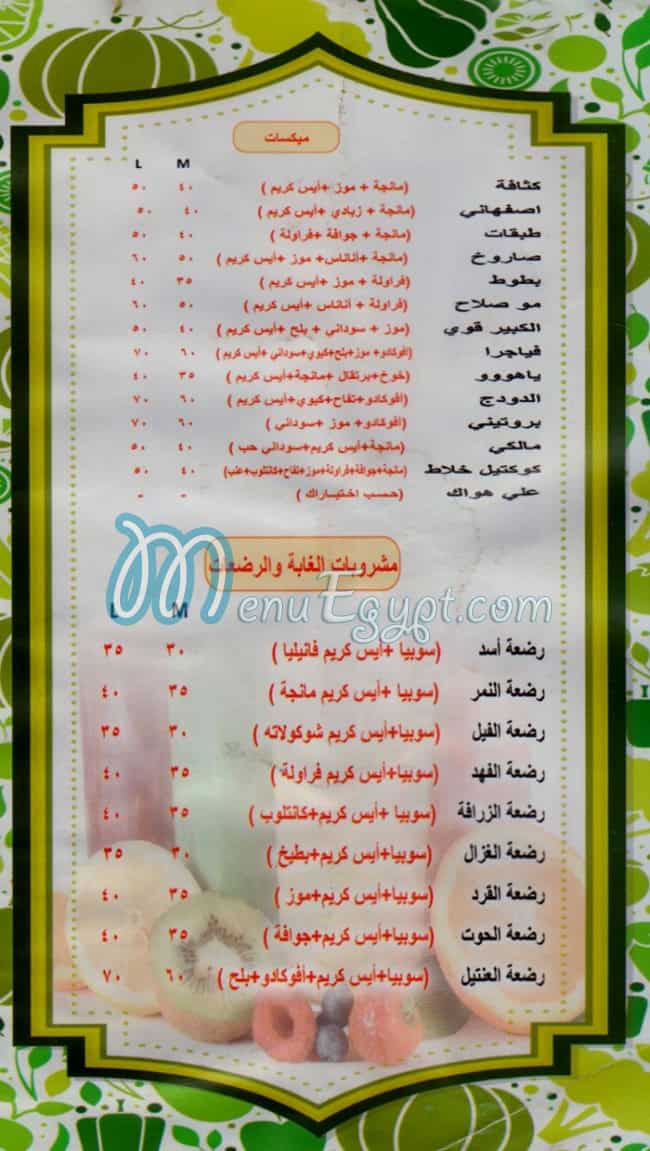 ميكسات
M L
كثافة (مانجة + موز +أيس كريم ) ٤٠ ٥٠
اصفهاني (مانجة + زبادي +أيس كريم ) ٤٠ ٥٠
طبقات (مانجة + جوافة +فراولة ) ٤٠ ٥٠
صاروخ (مانجة +أناناس+ موز +أيس كريم ) ٥٠ ٦٠
بطوط (فراولة + موز +أيس كريم ) ٣٥ ٤٠
مو صلاح (فراولة + أناناس +أيس كريم ) ٥٠ ٦٠
الكبير قوي (موز + سوداني + بلح +أيس كريم ) ٤٠ ٥٠
فياجرا (أفوكادو+ موز+بلح+كيوي+سوداني +أيس كريم ) ٦٠ ٧٠
ياهووو (خوخ+برتقال +مانجة+أيس كريم ) ٣٥ ٤٠
الدودج (أفوكادو+تفاح+كيوي+أيس كريم ) ٦٠ ٧٠
بروتيني (أفوكادو+ موز +سوداني ) ٦٠ ٧٠
مالكي (مانجة+أيس كريم+سوداني حب ) ٤٠ ٥٠
كوكتيل خلاط (مانجة+جوافة+فراولة+موز+تفاح+كانتلوب+عنب) ٤٠ ٥٠
علي هواك (حسب اختياراك ) - -
مشروبات الغابة والرضعات
MenuEgypt.com
M L
رضعة أسد (سوبيا +أيس كريم فانيليا ) ٣٠ ٣٥
رضعة النمر (سوبيا +أيس كريم مانجة ) ٣٥ ٤٠
رضعة الفيل (سوبيا+أيس كريم شوكولاته ) ٣٠ ٣٥
رضعة الفهد (سوبيا+أيس كريم فراولة ) ٣٥ ٤٠
رضعة الزرافة (سوبيا +أيس كريم+كانتلوب ) ٣٥ ٤٠
رضعة الغزال (سوبيا+أيس كريم+بطيخ ) ٣٠ ٣٥
رضعة القرد (سوبيا+أيس كريم+موز ) ٣٥ ٤٠
رضعة الحوت (سوبيا+أيس كريم+جوافة ) ٣٥ ٤٠
رضعة العنتيل (سوبيا+أيس كريم+أفوكادو+بلح ) ٦٠ ٧٠